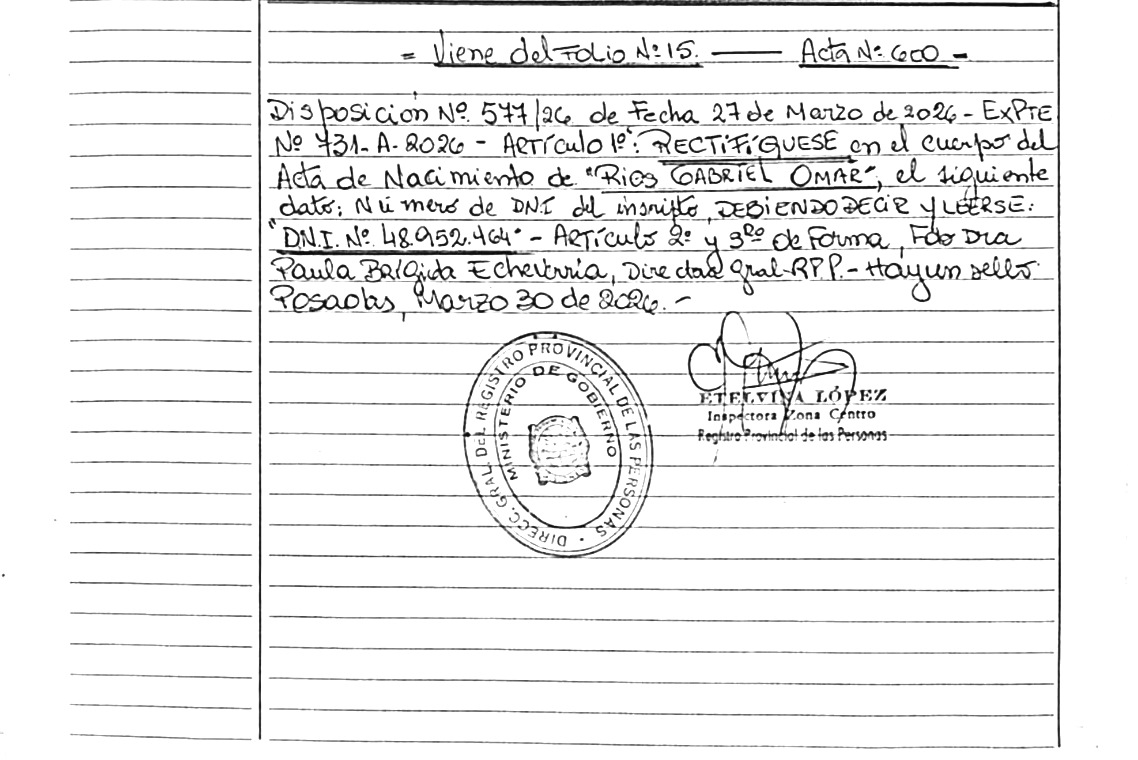 = Viene del Folio Nº 15. —— Acta Nº 600 =
Disposición Nº 577/26 de Fecha 27 de Marzo de 2026 - ExPTE
Nº 731-A-2026 - ARTÍCULO 1º: RECTIFÍQUESE en el cuerpo del
Acta de Nacimiento de "Rios GABRIEL OMAR", el siguiente
dato: Número de DNI del inscripto, DEBIENDO DECIR Y LEERSE:
"D.N.I. Nº 48.952.464" - ARTÍCULO 2º y 3ro de Forma, Fdo Dra
Paula Brígida Echeverría, Directora Gral-RPP.- Hay un sello.
Posadas, Marzo 30 de 2026.-
DIRECC. GRAL. DEL REGISTRO PROVINCIAL DE LAS PERSONAS
MINISTERIO DE GOBIERNO
ETELVINA LÓPEZ
Inspectora Zona Centro
Registro Provincial de las Personas